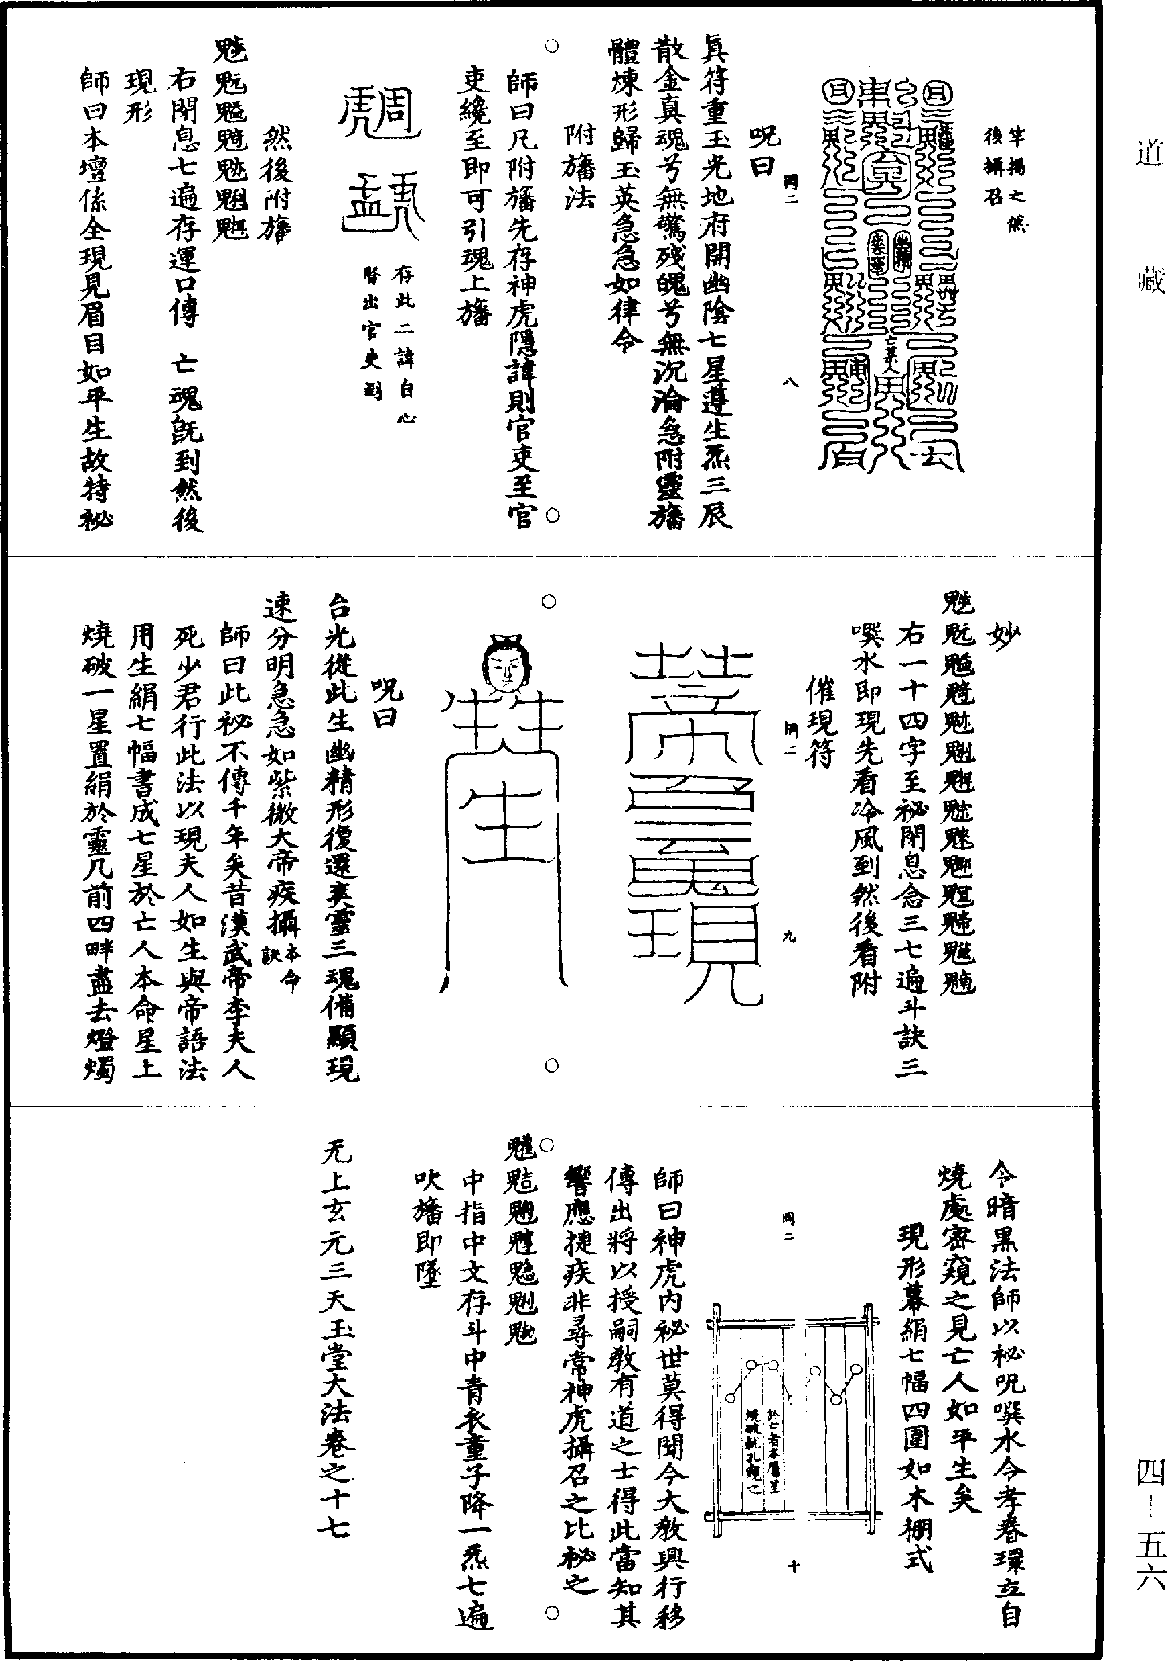 道藏
四—五六
牢揭之然
後攝召
咒曰
真符重玉光地府開幽陰七星尊生炁三辰
散金真魂兮無驚殘魄兮無沉淪急附靈旛
體煉形歸玉英急急如律令
附旛法
師曰凡附旛先存神虎隱諱則官吏至官
吏纔至即可引魂上旛
存此二諱自心
腎出官吏到
然後附旛
右閉息七遍存運口傳 亡魂旣到然後
現形
師曰本壇係全現見眉目如平生故特祕
妙
右一十四字至祕閉息念三七遍斗訣三
噀水即現先看冷風到然後看附
催現符
咒曰
台光從此生幽精形復還爽靈三魂備顯現
速分明急急如紫微大帝疾攝本命訣
師曰此祕不傳千年矣昔漢武帝李夫人
死少君行此法以現夫人如生與帝語法
用生絹七幅書成七星於亡人本命星上
燒破一星置絹於靈几前四畔盡去燈燭
令暗黑法師以祕咒噀水令孝眷環立自
燒處密窺之見亡人如平生矣
現形幕絹七幅四圍如木棚式
於亡者本屬星
燒破此孔窺之
師曰神虎內祕世莫得聞今大敎興行移
傳出將以授嗣敎有道之士得此當知其
響應捷疾非尋常神虎攝召之比祕之
中指中文存斗中青衣童子降一炁七遍
吹旛即墜
无上玄元三天玉堂大法卷之十七